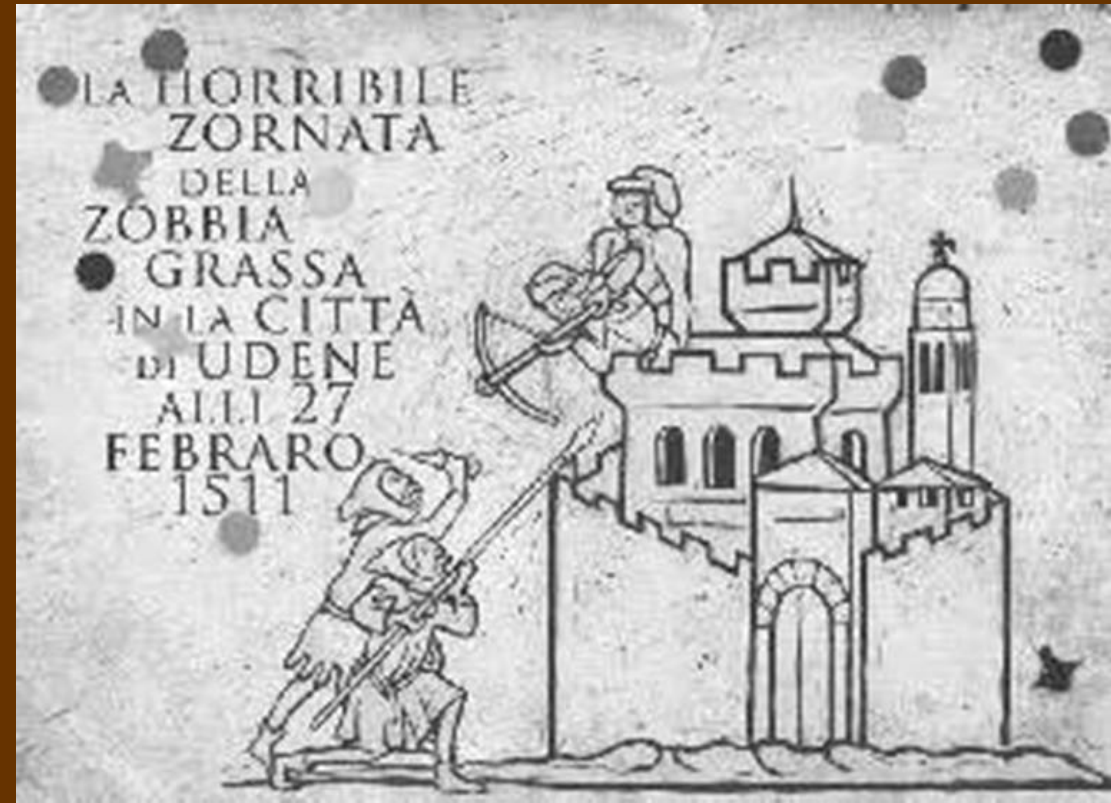 LA HORRIBILE
ZORNATA
DELLA
ZOBBIA
GRASSA
IN LA CITTÀ
DI UDENE
ALLI 27
FEBRARO
1511